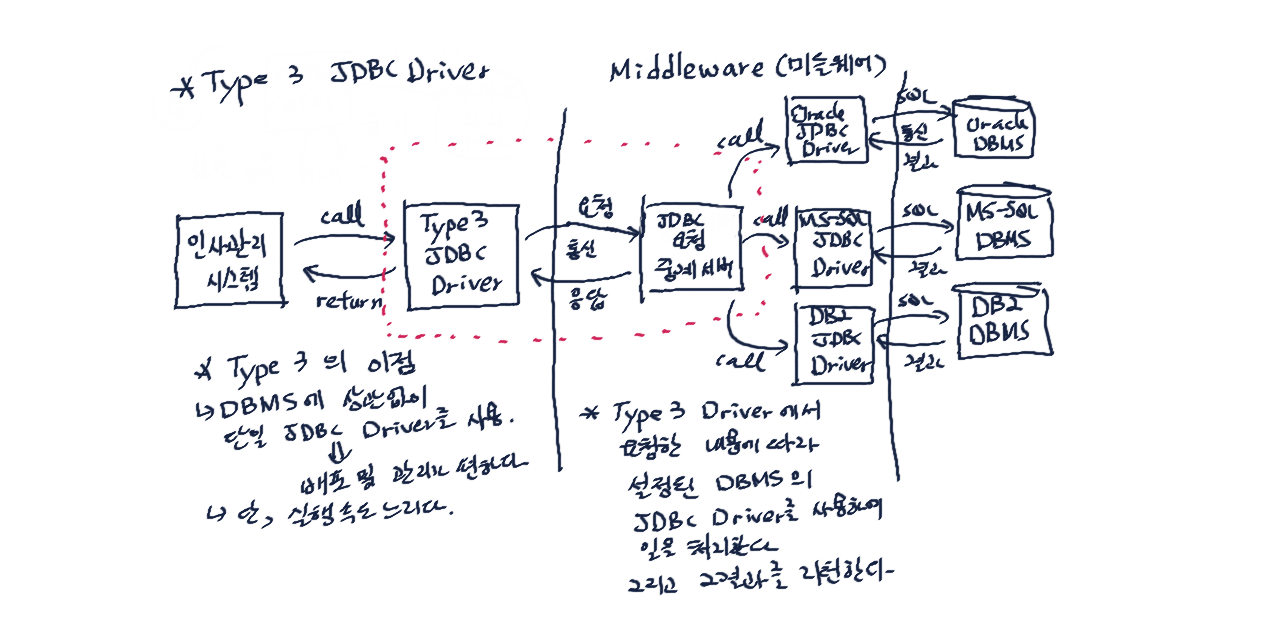 * Type 3 JDBC Driver
Middleware (미들웨어)
인사관리
시스템
call
return
Type 3
JDBC
Driver
요청
통신
응답
JDBC
요청
중계서버
call
call
call
Oracle
JDBC
Driver
SQL
통신
결과
Oracle
DBMS
MS-SQL
JDBC
Driver
SQL
결과
MS-SQL
DBMS
DB2
JDBC
Driver
SQL
결과
DB2
DBMS
* Type 3 의 이점
↳ DBMS에 상관없이
단일 JDBC Driver를 사용.
⇓
배포 및 관리가 편하다
↳ 단, 실행 속도 느리다.
* Type 3 Driver에서
요청한 내용에 따라
설정된 DBMS의
JDBC Driver를 사용하여
일을 처리한다
그리고 그 결과를 리턴한다-